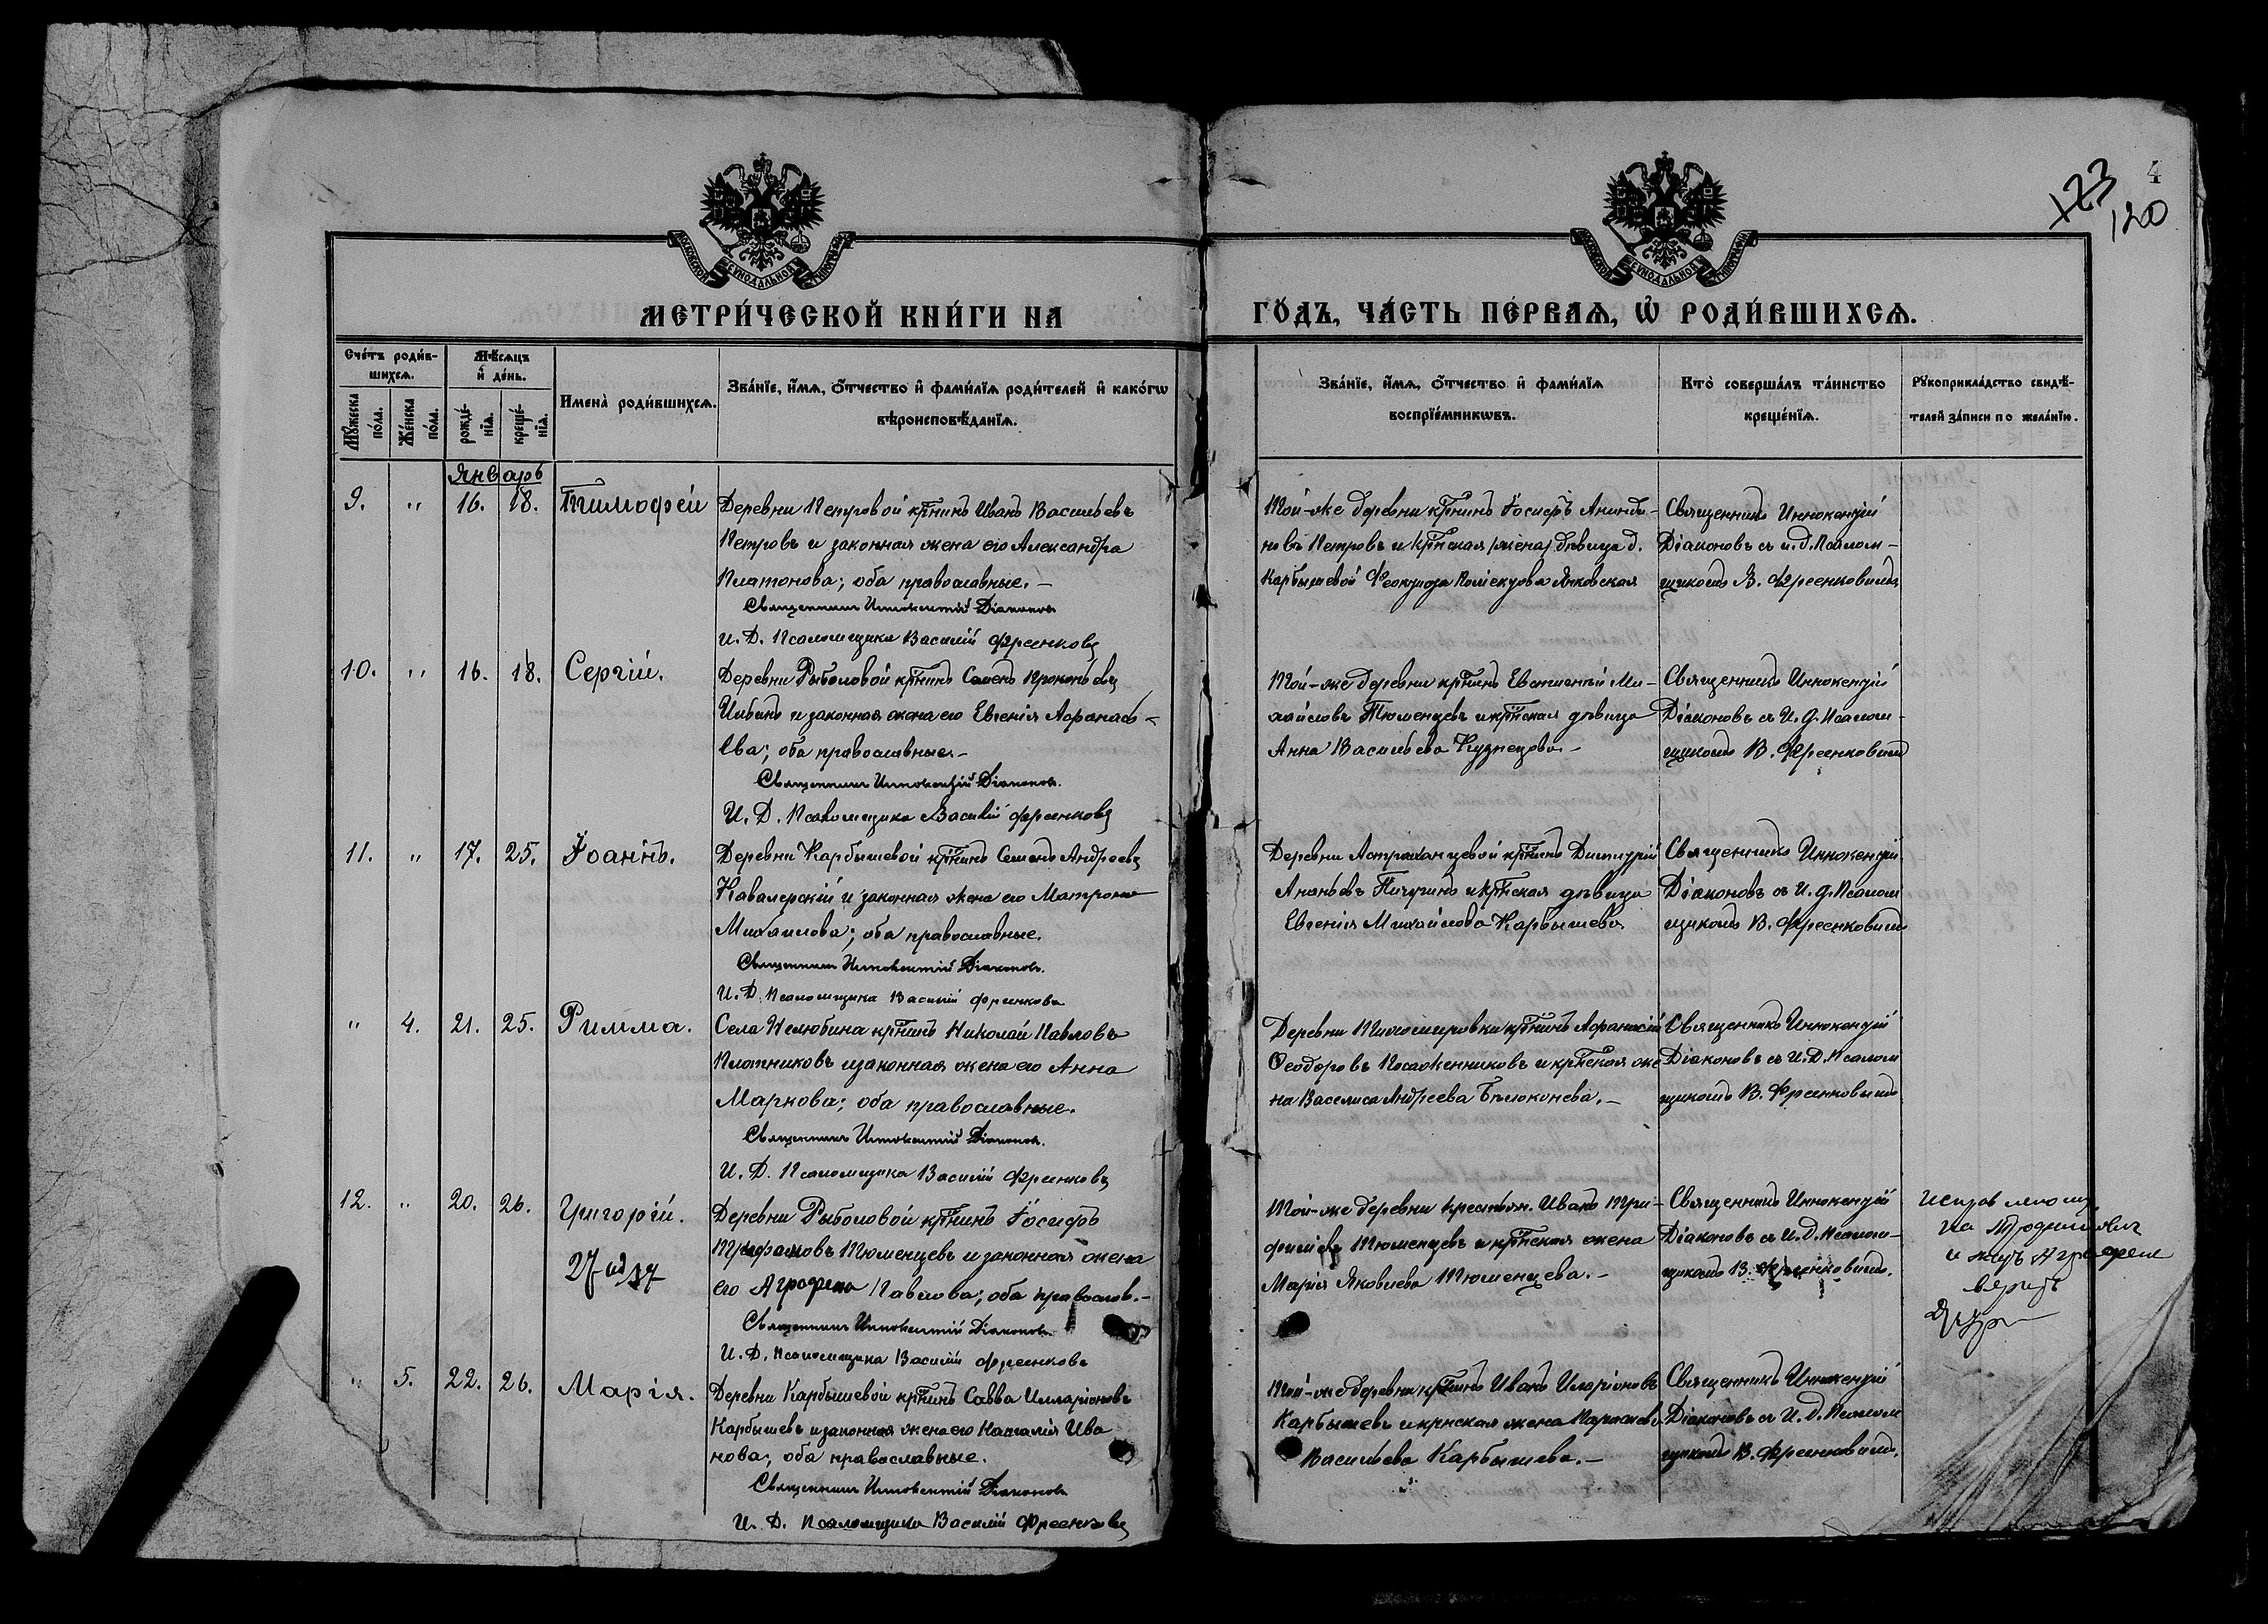 4
123
120
МОСКОВСКОЙ СѴНОДАЛЬНОЙ ТИПОГРАФІИ
МОСКОВСКОЙ СѴНОДАЛЬНОЙ ТИПОГРАФІИ
МЕТРИ́ЧЕСКОЙ КНИ́ГИ НА
ГО́ДЪ, ЧА́СТЬ ПЕ́РВАѦ, Ѡ҆ РОДИ́ВШИХСѦ.
Сче́тъ роди́в-
шихсѧ.
Мꙋ́жеска по́ла.
Же́нска по́ла.
Мѣ́сѧцъ
и҆ де́нь.
рожде́-нїѧ.
креще́-нїѧ.
Имена̀ роди́вшихсѧ.
Зва́нїе, и҆́мѧ, ѻ҆́тчество и҆ фами́лїѧ роди́телей и҆ како́гѡ
вѣроисповѣ́данїѧ.
Зва́нїе, и҆́мѧ, ѻ҆́тчество и҆ фами́лїѧ
воспрїе́мникѡвъ.
Кто̀ соверша́лъ та́инство
креще́нїѧ.
Рꙋкоприкла́дство свидѣ́-
телей за́писи по жела́нїю.
Январь
9. " 16. 18. Тимофей
Деревни Петровой кр̃нинъ Иванъ Васильевъ
Петровъ и законная жена его Александра
Платонова; оба православные. –
Священникъ Иннокентій Діаконовъ
И. Д. Псаломщика Василій Френковъ
Той-же деревни кр̃нинъ Іосифъ
новъ Петровъ и кр̃нская (жена) дѣвица д.
Карбышевой Янковская
Священникъ Иннокентій
Діаконовъ съ и. д. Псалом-
щикомъ В. Френковымъ
10. " 16. 18. Сергій.
Деревни Рыболовой кр̃нинъ Семенъ Прокопьевъ
и законная жена его Евгенія Афанась-
ева; оба православные. –
Священникъ Иннокентій Діаконовъ.
И. Д. Псаломщика Василій Френковъ
Той-же деревни кр̃нинъ Евгеній Ми-
хайловъ Тюменцевъ и кр̃нская дѣвица
Анна Васильева Кузнецова. –
Священникъ Иннокентій
Діаконовъ съ И. д. Псалом-
щикомъ В. Френковымъ
11. " 17. 25. Іоаннъ.
Деревни Карбышевой кр̃нинъ Семенъ Андреевъ
Кавалерскій и законная жена его Матрона
Михаилова; оба православные.
Священникъ Иннокентій Діаконовъ.
И. Д. Псаломщика Василій Френковъ
Деревни Астраханцевой кр̃нинъ Димитрій
Ананьевъ Пичугинъ и кр̃нская дѣвица
Евгенія Михайлова Карбышева
Священникъ Иннокентій
Діаконовъ съ И. д. Псалом
щикомъ В. Френковымъ
" 4. 21. 25. Римма.
Села Нелюбина кр̃нинъ Николай Павловъ
Плотниковъ и законная жена его Анна
Маркова; оба православные.
Священникъ Иннокентій Діаконовъ.
И. Д. Псаломщика Василій Френковъ
Деревни кр̃нинъ Афанасій
Ѳеодоровъ Посаженниковъ и кр̃нская же
на Василиса Андреева Бѣлоконева. –
Священникъ Иннокентій
Діаконовъ съ И. Д. Псалом
щикомъ В. Френковымъ
12. " 20. 26. Григорій.
27
Деревни Рыболовой кр̃нинъ Іосифъ
Трифановъ Тюменцевъ и законная жена
его Аграфена Павлова; оба православ. –
Священникъ Иннокентій Діаконовъ
И. Д. Псаломщика Василій Френковъ
Той-же деревни крестьян. Иванъ Три-
Тюменцевъ и кр̃нская жена
Марія Яковлева Тюменцева. –
Священникъ Иннокентій
Діаконовъ съ И. Д. Псалом-
щикомъ В. Френковымъ.
Аграфене
" 5. 22. 26. Марія.
Деревни Карбышевой кр̃нинъ Савва Илларіоновъ
Карбышевъ и законная жена его Наталія Ива
нова; оба православные.
Священникъ Иннокентій Діаконовъ
И. Д. Псаломщика Василій Френковъ
Той-же деревни кр̃нинъ Иванъ Иларіоновъ
Карбышевъ и крнская жена
Васильева Карбышева. –
Священникъ Иннокентій
Діаконовъ съ И. Д. Псалом
щикомъ В. Френковымъ.